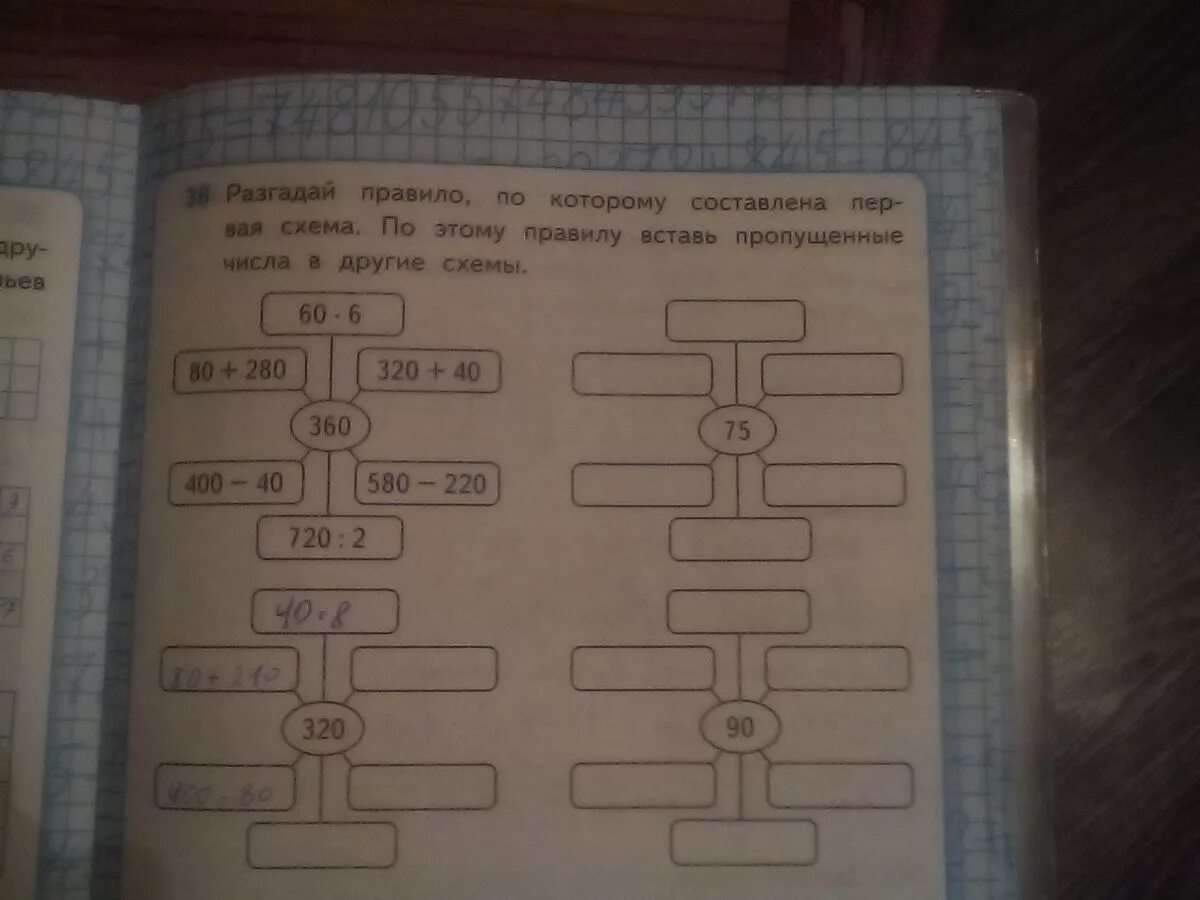 38 Разгадай правило, по которому составлена пер-
вая схема. По этому правилу вставь пропущенные
числа в другие схемы.
дру-
ьев
60 · 6
80 + 280
320 + 40
360
400 − 40
580 − 220
720 : 2
75
40 · 8
80 + 210
320
400 - 80
90
7
6
7